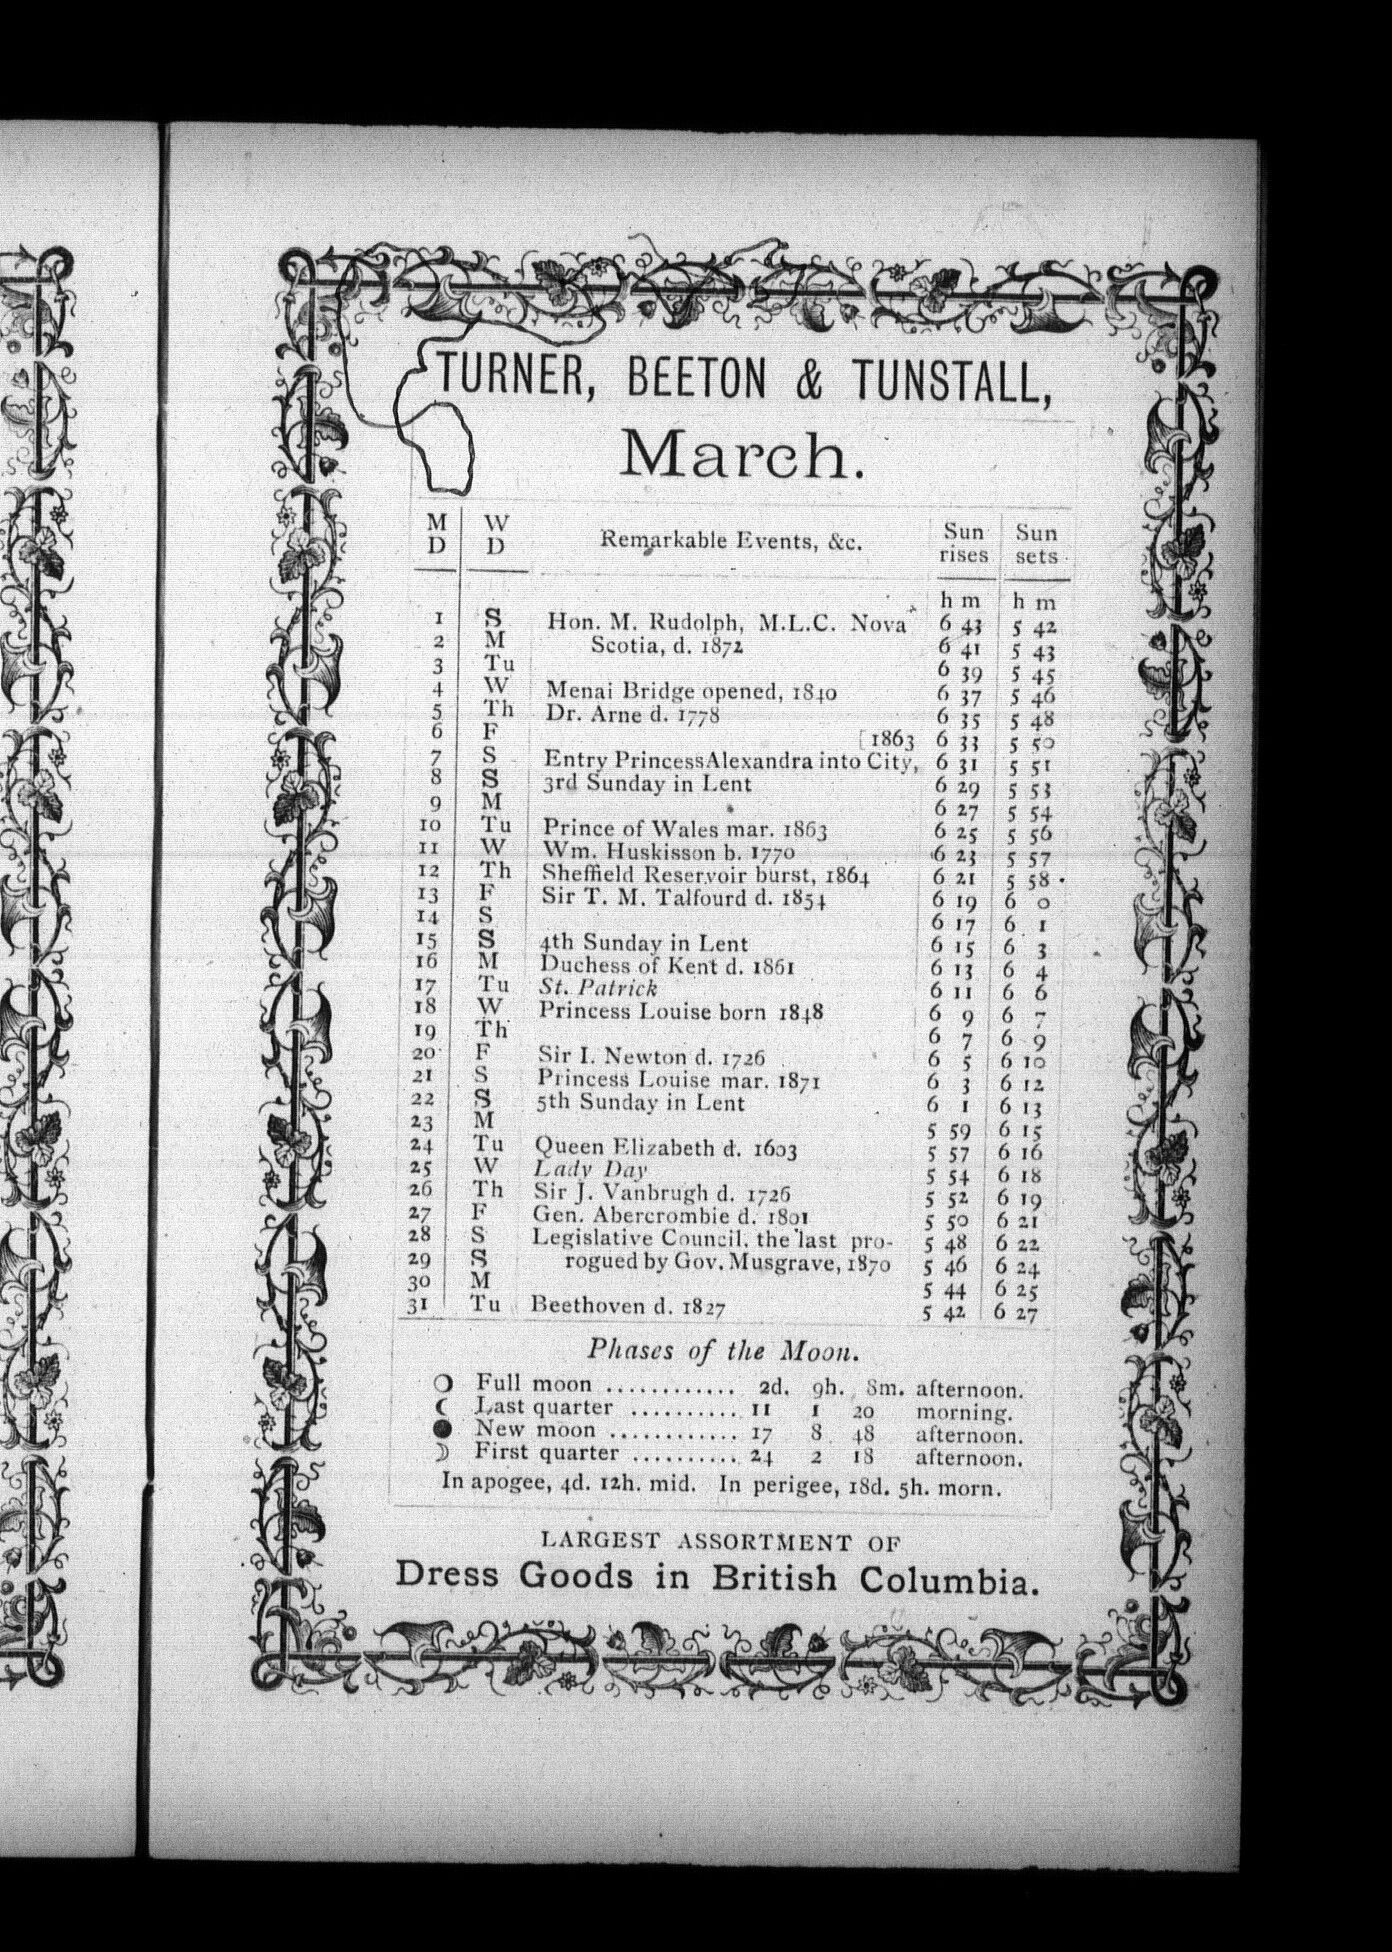 TURNER, BEETON & TUNSTALL,
March.
M D W D Remarkable Events, &c. Sun rises Sun sets
h m h m
1 S Hon. M. Rudolph, M.L.C. Nova 6 43 5 42
2 M Scotia, d. 1872 6 41 5 43
3 Tu 6 39 5 45
4 W Menai Bridge opened, 1840 6 37 5 46
5 Th Dr. Arne d. 1778 6 35 5 48
6 F [1863 6 33 5 50
7 S Entry Princess Alexandra into City, 6 31 5 51
8 S 3rd Sunday in Lent 6 29 5 53
9 M 6 27 5 54
10 Tu Prince of Wales mar. 1863 6 25 5 56
11 W Wm. Huskisson b. 1770 6 23 5 57
12 Th Sheffield Reservoir burst, 1864 6 21 5 58
13 F Sir T. M. Talfourd d. 1854 6 19 6 0
14 S 6 17 6 1
15 S 4th Sunday in Lent 6 15 6 3
16 M Duchess of Kent d. 1861 6 13 6 4
17 Tu St. Patrick 6 11 6 6
18 W Princess Louise born 1848 6 9 6 7
19 Th 6 7 6 9
20 F Sir I. Newton d. 1726 6 5 6 10
21 S Princess Louise mar. 1871 6 3 6 12
22 S 5th Sunday in Lent 6 1 6 13
23 M 5 59 6 15
24 Tu Queen Elizabeth d. 1603 5 57 6 16
25 W Lady Day 5 54 6 18
26 Th Sir J. Vanbrugh d. 1726 5 52 6 19
27 F Gen. Abercrombie d. 1801 5 50 6 21
28 S Legislative Council, the last pro- 5 48 6 22
29 S rogued by Gov. Musgrave, 1870 5 46 6 24
30 M 5 44 6 25
31 Tu Beethoven d. 1827 5 42 6 27
Phases of the Moon.
Full moon ............ 2d. 9h. 8m. afternoon.
Last quarter .......... 11 1 20 morning.
New moon ............ 17 8 48 afternoon.
First quarter .......... 24 2 18 afternoon.
In apogee, 4d. 12h. mid. In perigee, 18d. 5h. morn.
LARGEST ASSORTMENT OF
Dress Goods in British Columbia.